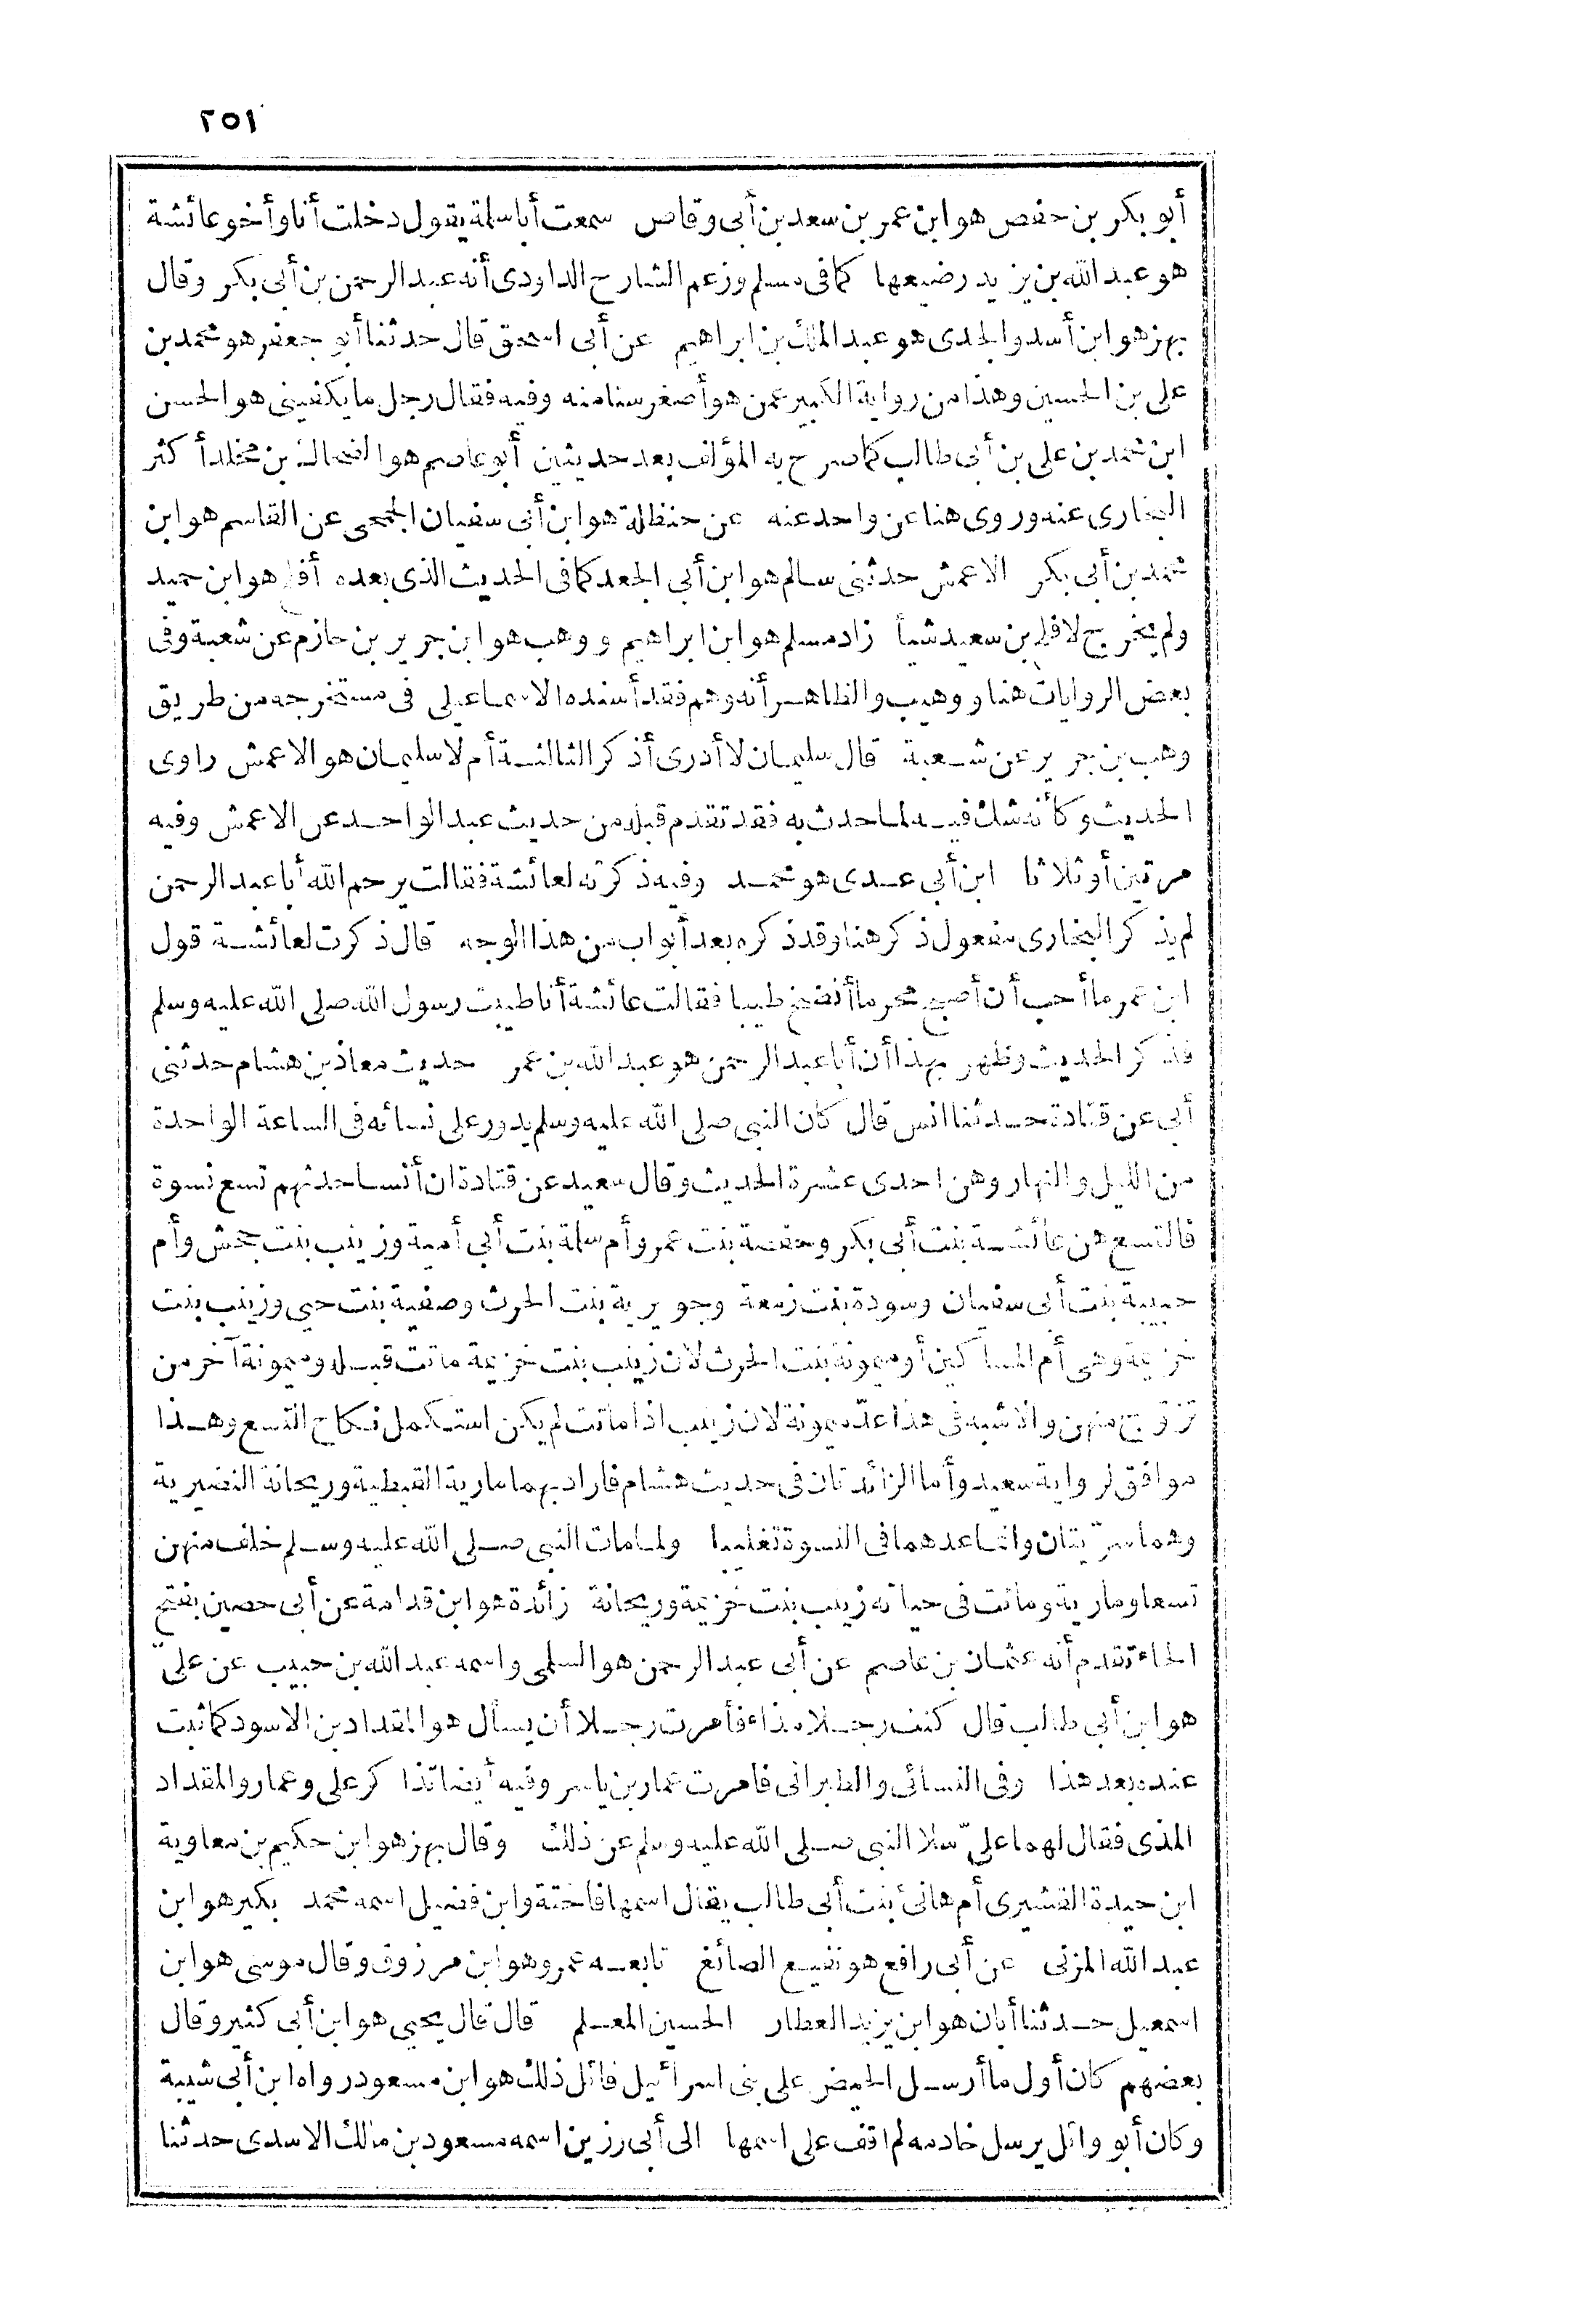 ٢٥١
أبو بكر بن حفص هو ابن عمر بن سعد بن أبى وقاص سمعت أبا سلمة يقول دخلت أنا وأخو عائشة
هو عبد الله بن يزيد رضيعها كما فى مسلم وزعم الشارح الداودى أنه عبد الرحمن بن أبى بكر وقال
بهز هو ابن أسد والجدى هو عبد الملك بن ابراهيم عن أبى اسحق قال حدثنا أبو جعفر هو محمد بن
على بن الحسين وهذا من رواية الكبير عمن هو أصغر سنا منه وفيه فقال رجل ما يكفينى هو الحسن
ابن محمد بن على بن أبى طالب كما صرح به المؤلف بعد حديثين أبو عاصم هو الضحاك بن مخلد أكثر
البخارى عنه وروى هنا عن واحد عنه عن حنظلة هو ابن أبى سفيان الجمحى عن القاسم هو ابن
محمد بن أبى بكر الاعمش حدثنى سالم هو ابن أبى الجعد كما فى الحديث الذى بعده أفلح هو ابن حميد
ولم يخرج لافلح بن سعيد شيأ زاد مسلم هو ابن ابراهيم ووهب هو ابن جرير بن حازم عن شعبة وفى
بعض الروايات هنا ووهيب والظاهر أنه وهم فقد أسنده الاسماعيلى فى مستخرجه من طريق
وهب بن جرير عن شعبة قال سليمان لا أدرى أذكر الثالثة أم لا سليمان هو الاعمش راوى
الحديث وكأنه شك فيه لما حدث به فقد تقدم قبله من حديث عبد الواحد عن الاعمش وفيه
مرتين أو ثلاثا ابن أبى عدى هو محمد وفيه ذكرته لعائشة فقالت يرحم الله أبا عبد الرحمن
لم يذكر البخارى مفعول ذكر هنا وقد ذكره بعد أبواب من هذا الوجه قال ذكرت لعائشة قول
ابن عمر ما أحب أن أصبح محرما أنضخ طيبا فقالت عائشة أنا طيبت رسول الله صلى الله عليه وسلم
فذكر الحديث وظهر بهذا أن أبا عبد الرحمن هو عبد الله بن عمر حديث معاذ بن هشام حدثنى
أبى عن قتادة حدثنا انس قال كان النبى صلى الله عليه وسلم يدور على نسائه فى الساعة الواحدة
من الليل والنهار وهن احدى عشرة الحديث وقال سعيد عن قتادة ان أنسا حدثهم تسع نسوة
فالتسع هن عائشة بنت أبى بكر وحفصة بنت عمر وأم سلمة بنت أبى أمية وزينب بنت جحش وأم
حبيبة بنت أبى سفيان وسودة بنت زمعة وجويرية بنت الحرث وصفية بنت حيى وزينب بنت
خزيمة وهى أم المساكين أو ميمونة بنت الحرث لان زينب بنت خزيمة ماتت قبله وميمونة آخر من
تزوج منهن والاشبه فى هذا عدّ ميمونة لان زينب اذا ماتت لم يكن استكمل نكاح التسع وهذا
موافق لرواية سعيد وأما الزائدتان فى حديث هشام فاراد بهما مارية القبطية وريحانة النضيرية
وهما سرّيتان وانما عدهما فى النسوة تغليبا ولما مات النبى صلى الله عليه وسلم خلف منهن
تسعا ومارية وماتت فى حياته زينب بنت خزيمة وريحانة زائدة هو ابن قدامة عن أبى حصين بفتح
الحاء تقدم أنه عثمان بن عاصم عن أبى عبد الرحمن هو السلمى واسمه عبد الله بن حبيب عن علىّ
هو ابن أبى طالب قال كنت رجلا مذاء فأمرت رجلا أن يسأل هو المقداد بن الاسود كما ثبت
عنده بعد هذا وفى النسائى والطبرانى فامرت عمار بن ياسر وفيه أيضا تذاكر على وعمار والمقداد
المذى فقال لهما علىّ سلا النبى صلى الله عليه وسلم عن ذلك وقال بهز هو ابن حكيم بن معاوية
ابن حيدة القشيرى أم هانئ بنت أبى طالب يقال اسمها فاختة وابن فضيل اسمه محمد بكير هو ابن
عبد الله المزنى عن أبى رافع هو نفيع الصائغ تابعه عمرو هو ابن مرزوق وقال موسى هو ابن
اسمعيل حدثنا أبان هو ابن يزيد العطار الحسين المعلم قال قال يحيى هو ابن أبى كثير وقال
بعضهم كان أول ما أرسل الحيض على بنى اسرائيل قائل ذلك هو ابن مسعود رواه ابن أبى شيبة
وكان أبو وائل يرسل خادمه لم اقف على اسمها الى أبى رزين اسمه مسعود بن مالك الاسدى حدثنا